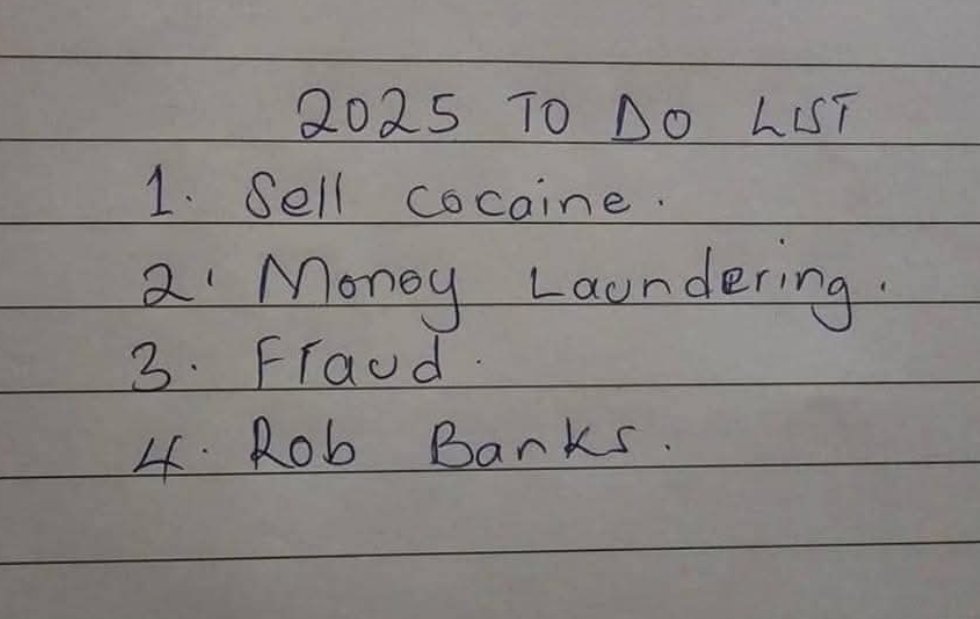 2025 TO DO LIST
1. Sell cocaine.
2. Money Laundering.
3. Fraud.
4. Rob Banks.